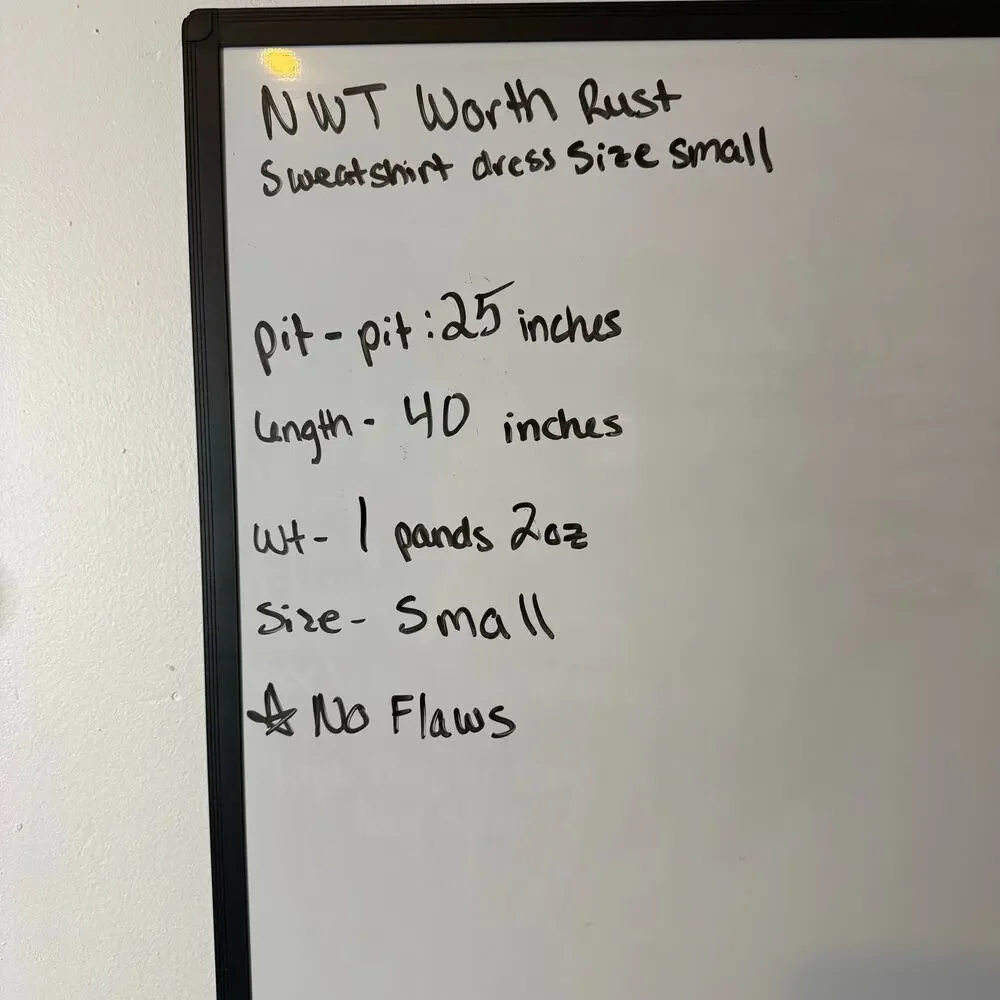 NWT Worth Rust
Sweatshirt dress Size small
pit - pit : 25 inches
length - 40 inches
wt - 1 pounds 2oz
Size - Small
☆ No Flaws